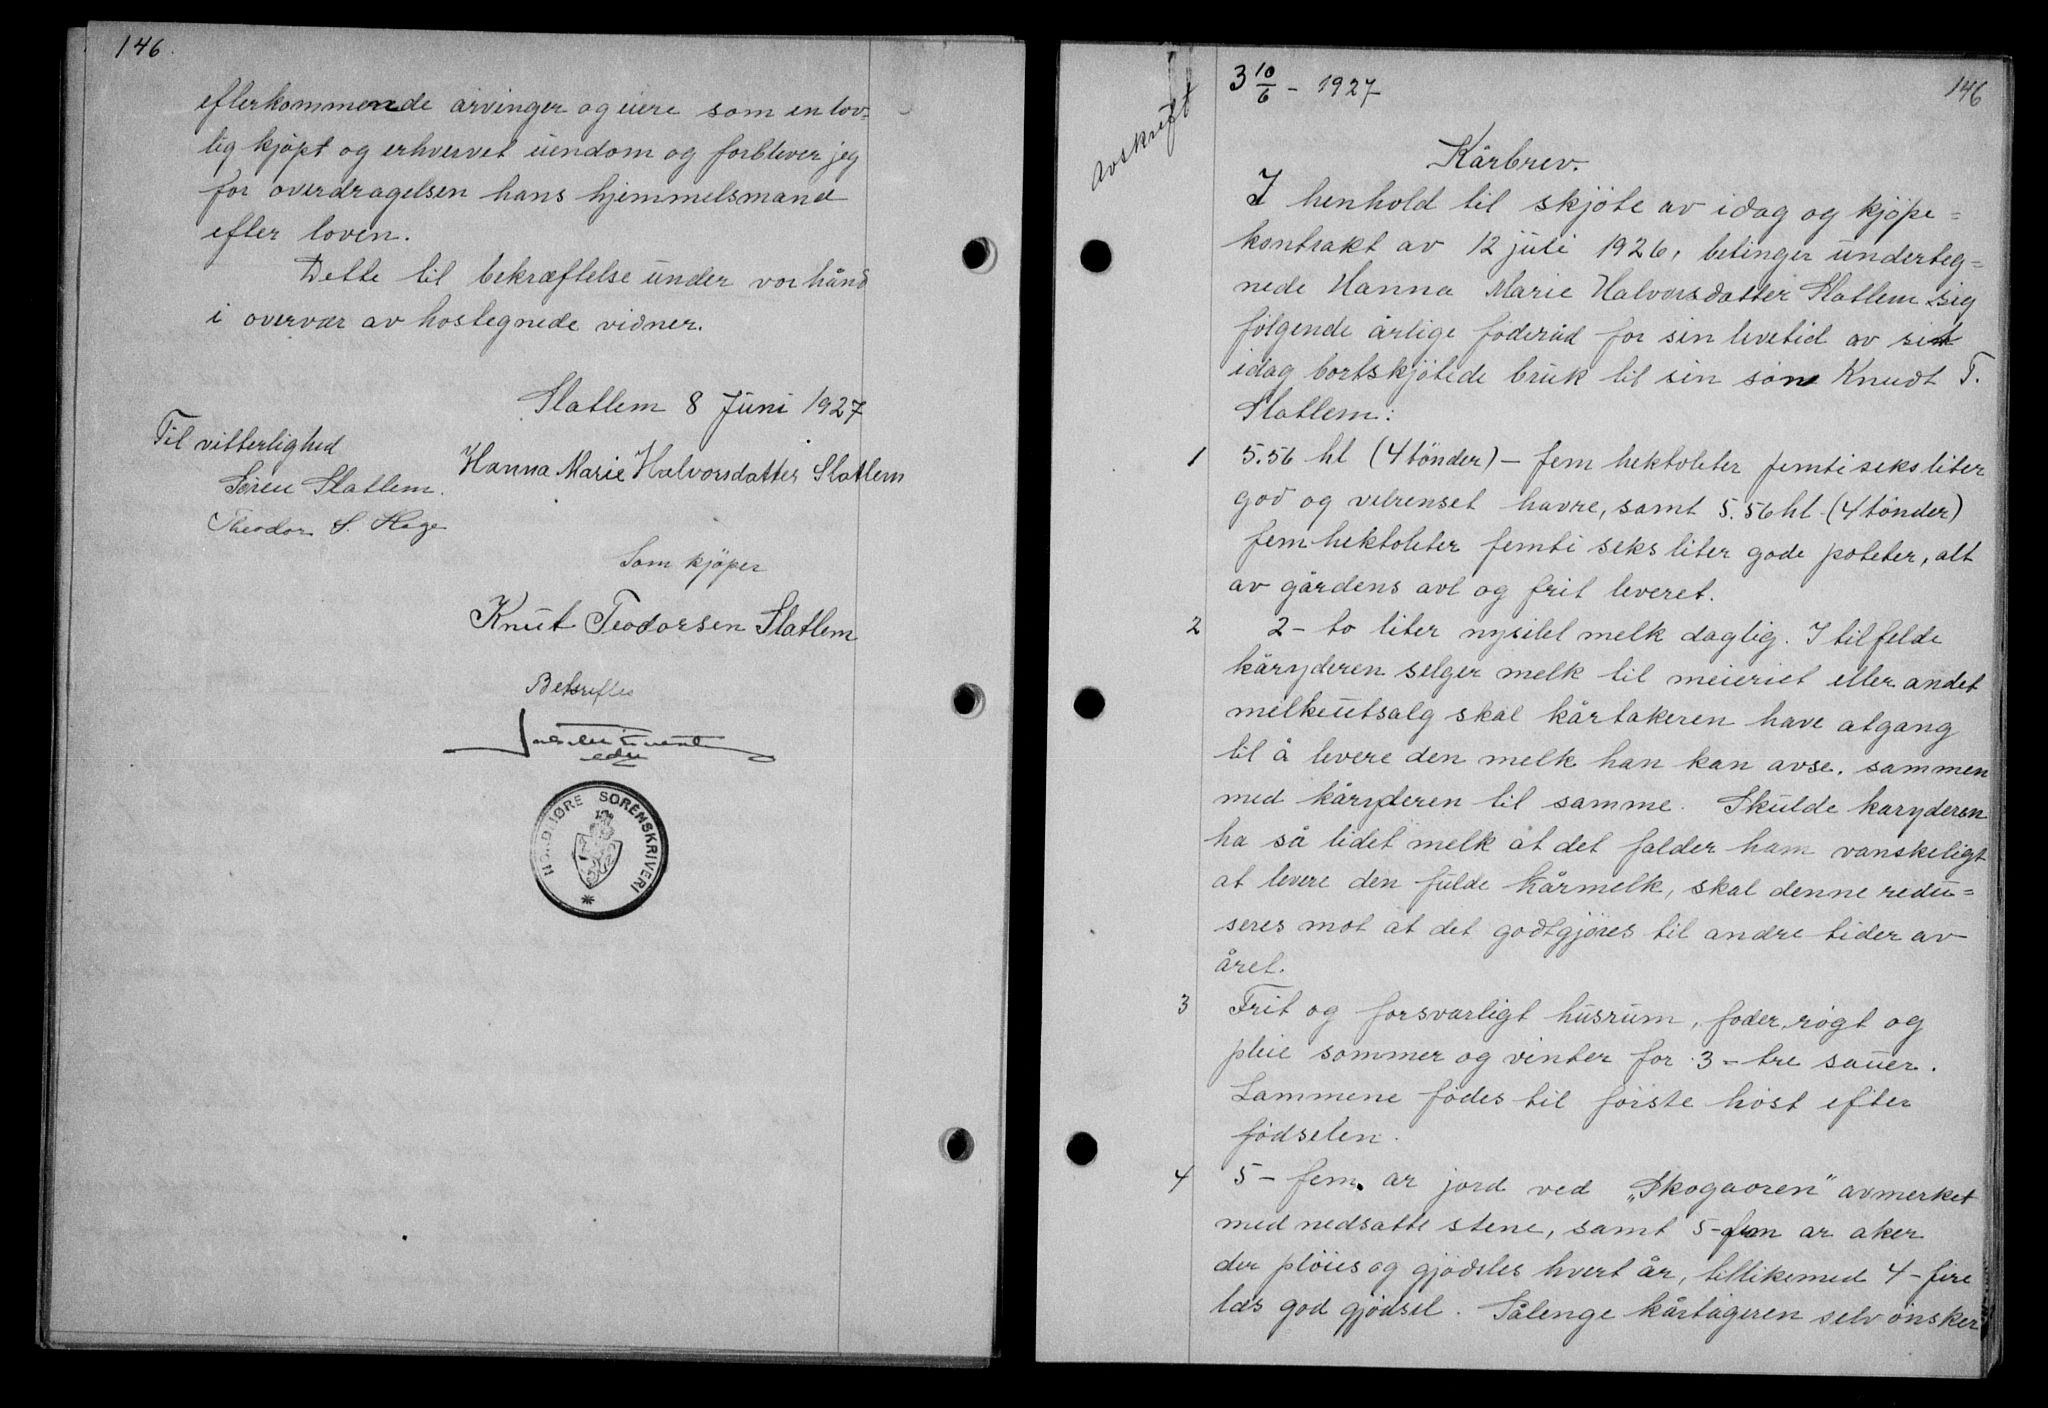 146.
efterkommende arvinger og eiere som en lov-
lig kjøpt og erhvervet eiendom og forblever jeg
for overdragelsen hans hjemmelsmand
efter loven.
Dette til bekræftelse under vor hånd
i overvær av hostegnede vidner.
Slatlem 8 Juni 1927
Til vitterlighed
Hanna Marie Halvorsdatter Slatlem
Søren Slatlem.
Theodor S. Hage
Som kjøper
Knut Teodorsen Slatlem
Bekreftes
NORDMØRE SORENSKRIVERI
Avskrift
3 10/6 - 1927
146
Kårbrev.
I henhold til skjöte av idag og kjöpe=
kontrakt av 12 juli 1926, betinger underteg=
nede Hanna Marie Halvorsdatter Slatlem sig
fölgende årlige föderåd for sin levetid av sit
idag bortskjötede bruk til sin sön Knudt T.
Slatlem:
1 5.56 hl (4 tönder) - fem hektoliter femti seks liter
god og velrenset havre, samt 5.56 hl (4 tönder)
fem hektoliter femti seks liter gode poteter, alt
av gårdens avl og frit leveret.
2 2 - to liter nysilet melk daglig. I tilfelde
kåryderen selger melk til meieriet eller andet
melkeutsalg skal kårtakeren have atgang
til å levere den melk han kan avse, sammen
med kåryderen til samme. Skulde karyderen
ha så lidet melk at det falder ham vanskeligt
at levere den fulde kårmelk, skal denne redu=
seres mot at det godtgjöres til andre tider av
året.
3 Frit og forsvarligt husrum, foder, rögt og
pleie sommer og vinter for 3 - tre sauer.
Lammene födes til förste höst efter
födselen.
4 5 - fem ar jord ved "Skogaoren" avmerket
med nedsatte stene, samt 5-fem ar aker
der plöies og gjödsles hvert år, tillikemed 4 - fire
læs god gjödsel. Sålenge kårtageren selv önsker